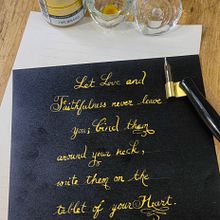 Let Love and
Faithfulness never leave
you; bind them
around your neck,
write them on the
tablet of your Heart.